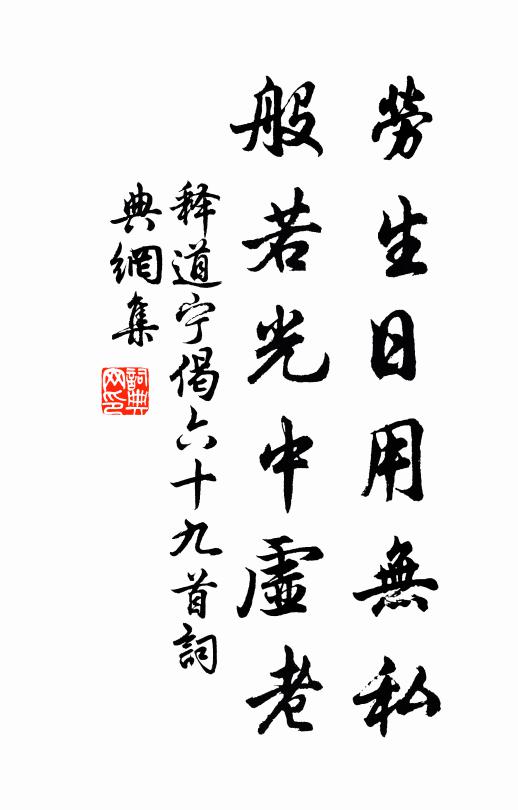 勞生日用無私
般若光中虛老
释道宁偈六十九首詞
典網集
詞典
网印